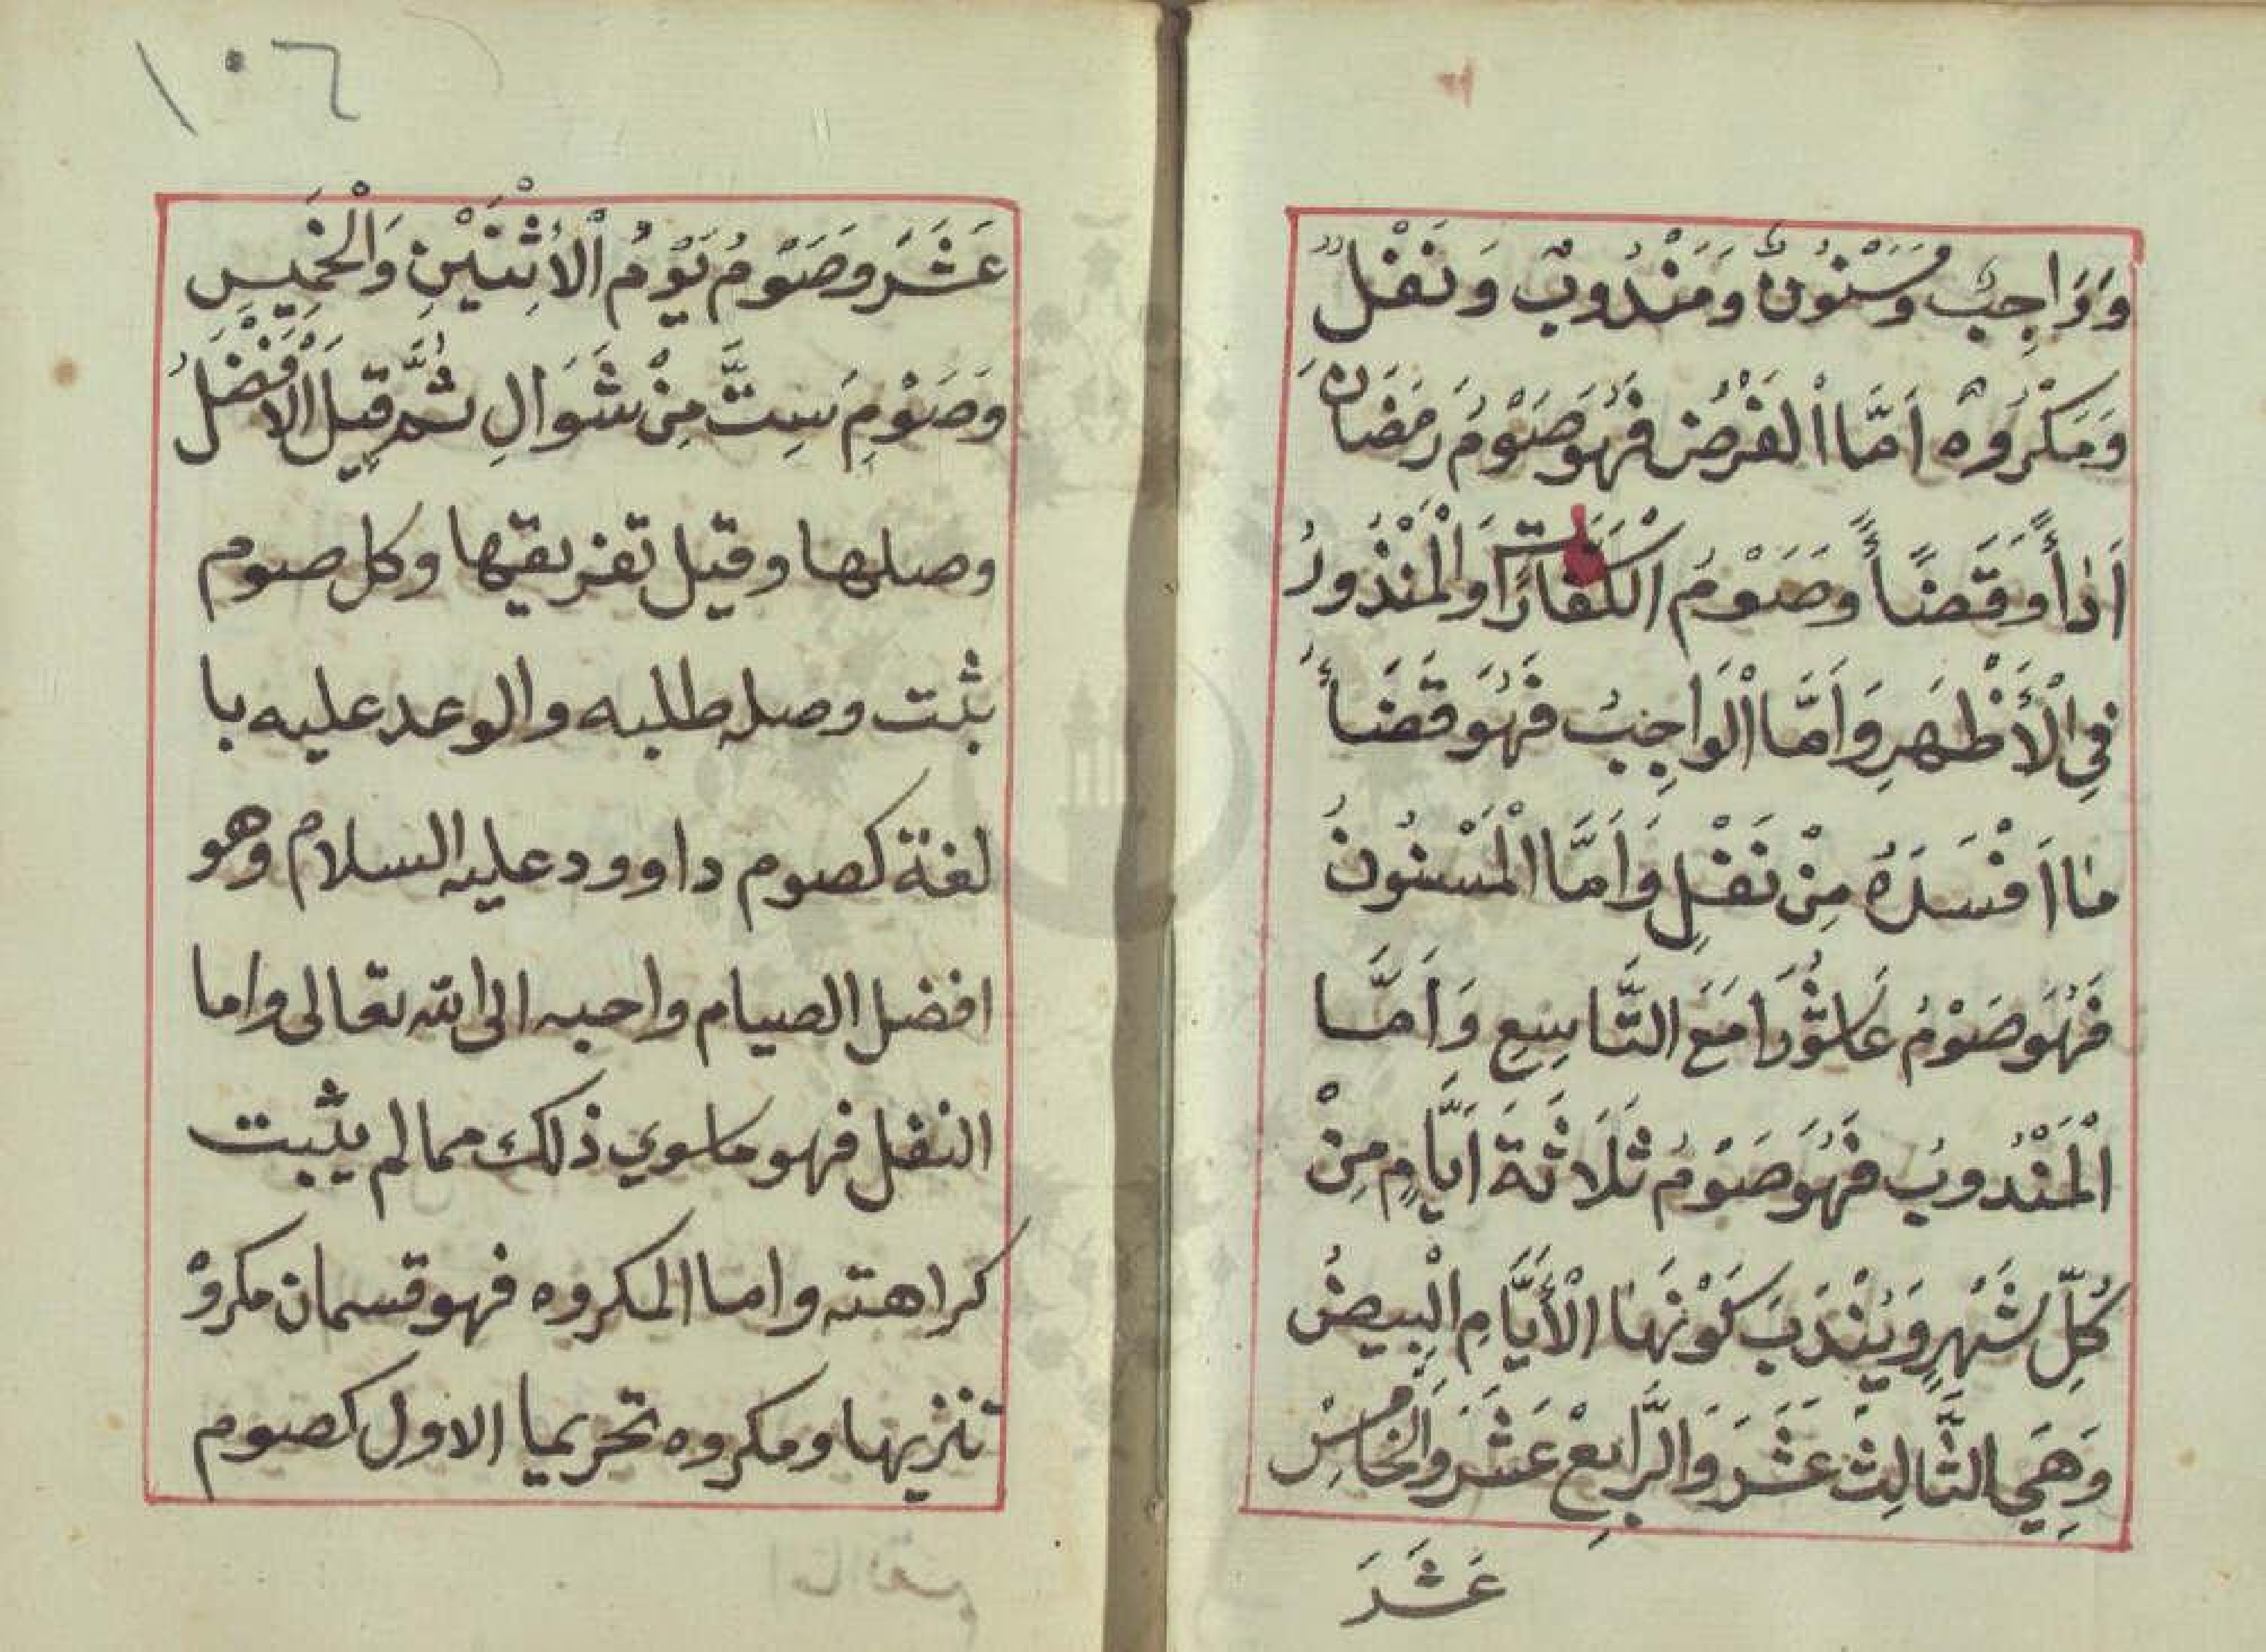 وَوَاجِبٌ وَمَسْنُونٌ وَمَنْدُوبٌ وَنَفْلٌ
وَمَكْرُوهٌ اَمَّا الْفَرْضُ فَهُوَ صَوْمُ رَمَضَانَ
اَدَأً وَقَضَأً وَصَوْمُ الْكَفَّارَات وَالْمَنْذُورُ
فِي الْأَظْهَرِ وَاَمَّا الْوَاجِبُ فَهُوَ قَضَأُ
مَا اَفْسَدَهُ مِنْ نَفْلٍ وَاَمَّا الْمَسْنُونُ
فَهُوَ صَوْمُ عَاشُورَا مَعَ التَّاسِعِ وَاَمَّا
الْمَنْدُوبُ فَهُوَ صَوْمُ ثَلَاثَةَ اَيَّامٍ مِنْ
كُلِّ شَهْرٍ وَيُنْدَبَ كَوْنَهَا الْأَيَّامِ الْبِيضُ
وَهِيَ الثَّالِثَ عَشَرَ وَالرَّابِعْ عَشَرَ وَالْخَامِسْ
عَشَرَ
١٠٦
عَشَرَ وَصَوْمُ يَوْمُ الْأِثْنَيْنِ وَالْخَمِيسِ
وَصَوْمِ سِتَّ مِنْ شَوَالِ ثُمَّ قِيلَ الْأَفْضَلُ
وصلها وقيل تفريقها وكل صوم
بثت وصله طلبه والوعد عليه با
لغة كصوم داوود عليه السلام وهو
افضل الصيام واحبه الى الله تعالى واما
النفل فهو ما سوي ذلك مما لم يثبت
كراهته واما المكروه فهو قسمان مكروْ
تنزيها ومكروه تحريما الاول كصوم